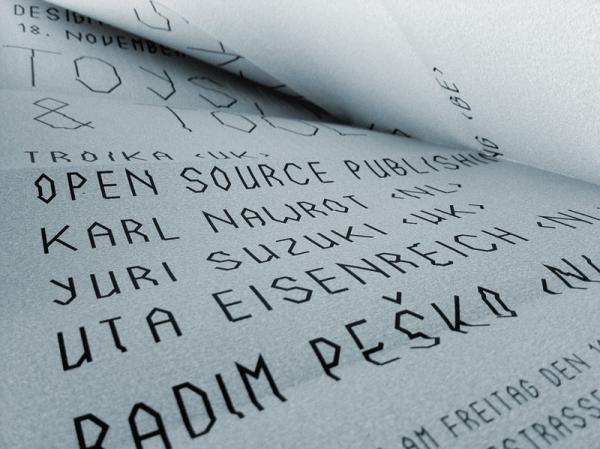 DESIGN
18. NOVEMBER
TOYS
&
TROIKA <UK>
OPEN SOURCE PUBLISHING <BE>
KARL NAWROT <NL>
YURI SUZUKI <UK>
UTA EISENREICH <NL
RADIM PEŠKO <NL
AM FREITAG DEN 1
STRASSE